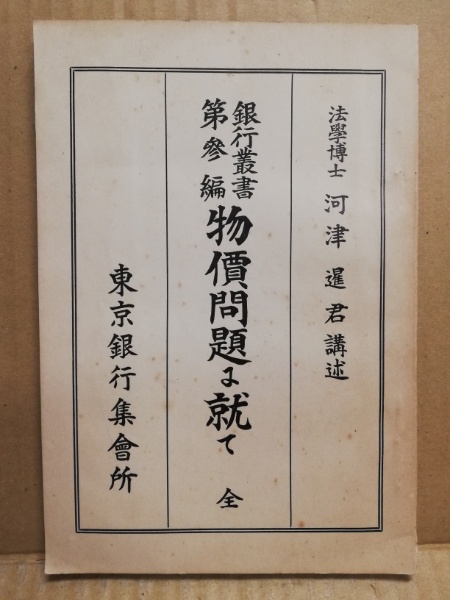 法學博士 河津暹君講述
銀行叢書
第參編
物價問題に就て 全
東京銀行集會所